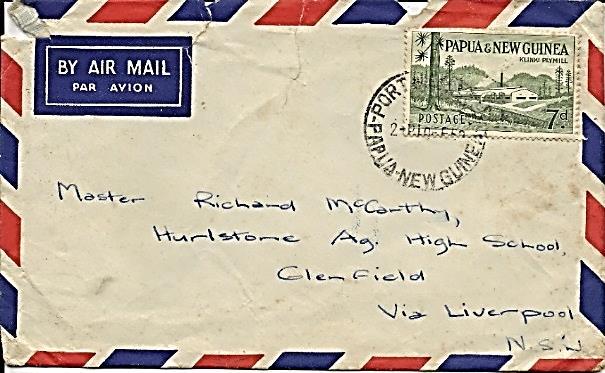 BY AIR MAIL
PAR AVION
PAPUA & NEW GUINEA
KLINKI PLYMILL
POSTAGE 7d.
PORT
PAPUA-NEW GUINEA
Master Richard McCarthy,
Hurlstone Ag. High School,
Glenfield
Via Liverpool
N.S.W